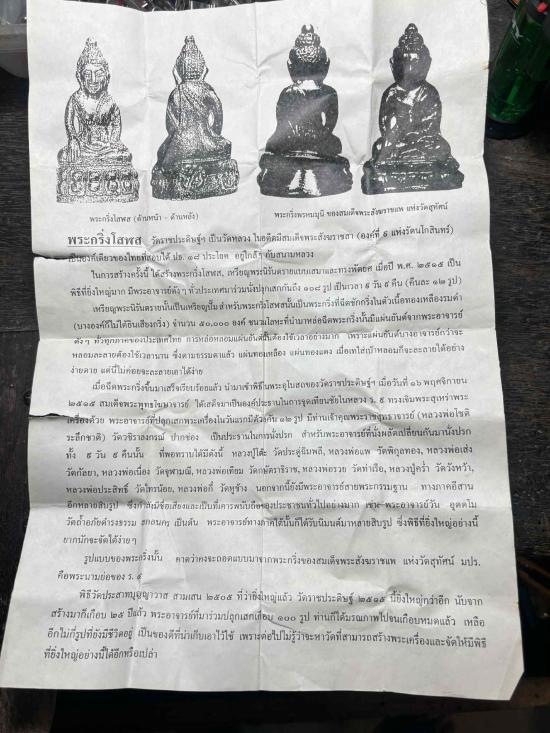 พระกริ่งโสฬส (ด้านหน้า - ด้านหลัง)
พระกริ่งพรหมมุนี ของสมเด็จพระสังฆราชแพ แห่งวัดสุทัศน์
พระกริ่งโสฬส วัดราชประดิษฐ์ฯ เป็นวัดหลวง ในอดีตมีสมเด็จพระสังฆราชสา (องค์ที่ ๙ แห่งรัตนโกสินทร์)
เป็นองค์เดียวของไทยที่สอบได้ ปธ. ๑๘ ประโยค อยู่ใกล้ๆ กับสนามหลวง
ในการสร้างครั้งนี้ ได้สร้างพระกริ่งโสฬส, เหรียญพระนิรันตรายแบบเสมาและทรงพัดยศ เมื่อปี พ.ศ. ๒๕๑๕ เป็น
พิธีที่ยิ่งใหญ่มาก มีพระอาจารย์ดังๆ ทั่วประเทศมาร่วมนั่งปลุกเสกกันถึง ๑๐๘ รูป เป็นเวลา ๙ วัน ๙ คืน (คืนละ ๑๒ รูป)
เหรียญพระนิรันตรายนั้นเป็นเหรียญปั๊ม สำหรับพระกริ่งโสฬสนั้นเป็นพระกริ่งที่ฉีดชักกริ่งในตัวเนื้อทองเหลืองรมดำ
(บางองค์ก็ไม่ได้ยินเสียงกริ่ง) จำนวน ๕๐,๐๐๐ องค์ ชนวนโลหะที่นำมาหล่อฉีดพระกริ่งนั้นมีแผ่นยันต์จากพระอาจารย์
ดังๆ ทั่วทุกภาคของประเทศไทย การหล่อหลอมแผ่นยันต์นั้นต้องใช้เวลาอย่างมาก เพราะแผ่นยันต์บางอาจารย์กว่าจะ
หลอมละลายต้องใช้เวลานาน ซึ่งตามธรรมดาแล้ว แผ่นทองเหลือง แผ่นทองแดง เมื่อเทใส่เบ้าหลอมก็จะละลายได้อย่าง
ง่ายดาย แต่นี่ไม่ค่อยจะละลายเอาได้ง่าย
เมื่อฉีดพระกริ่งขึ้นมาเสร็จเรียบร้อยแล้ว นำมาเข้าพิธีในพระอุโบสถของวัดราชประดิษฐ์ฯ เมื่อวันที่ ๑๖ พฤศจิกายน
๒๕๑๕ สมเด็จพระพุทธโฆษาจารย์ ได้เสด็จมาเป็นองค์ประธานในการจุดเทียนชัยในหลวง ร. ๙ ทรงเจิมพระสุหร่าพระ
เครื่องด้วย พระอาจารย์ที่ปลุกเสกพระเครื่องในวันแรกมีด้วยกัน ๑๒ รูป มีท่านเจ้าคุณพระราชสุทธาจารย์ (หลวงพ่อโชติ
ระลึกชาติ) วัดวชิราลงกรณ์ ปากช่อง เป็นประธานในการนั่งปรก สำหรับพระอาจารย์ที่นั่งผลัดเปลี่ยนกันมานั่งปรก
ทั้ง ๙ วัน ๙ คืนนั้น ที่พอทราบได้มีดังนี้ หลวงปู่โต๊ะ วัดประดู่ฉิมพลี, หลวงพ่อแพ วัดพิกุลทอง, หลวงพ่อเส่ง
วัดกัลยา, หลวงพ่อเนื่อง วัดจุฬามณี, หลวงพ่อเทียม วัดกษัตราธิราช, หลวงพ่อรวย วัดท่าเรือ, หลวงปู่คร่ำ วัดวังหว้า,
หลวงพ่อประสิทธิ์ วัดไทรน้อย, หลวงพ่อกี๋ วัดหูช้าง นอกจากนี้ยังมีพระอาจารย์สายพระกรรมฐาน ทางภาคอีสาน
อีกหลายสิบรูป ซึ่งกำลังมีชื่อเสียงและเป็นที่เคารพนับถือของประชาชนทั่วไปอย่างมาก เช่น พระอาจารย์วัน อุตตโม
วัดถ้ำอภัยดำรงธรรม สกลนคร เป็นต้น พระอาจารย์ทางภาคใต้นั้นก็ได้รับนิมนต์มาหลายสิบรูป ซึ่งพิธีที่ยิ่งใหญ่อย่างนี้
ยากนักจะจัดได้ง่ายๆ
รูปแบบของพระกริ่งนั้น คาดว่าคงจะถอดแบบมาจากพระกริ่งของสมเด็จพระสังฆราชแพ แห่งวัดสุทัศน์ มปร.
คือพระนามย่อของ ร. ๔
พิธีวัดประสาทบุญญาวาส สามเสน ๒๕๐๕ ที่ว่ายิ่งใหญ่แล้ว วัดราชประดิษฐ์ ๒๕๑๕ นี้ยิ่งใหญ่กว่าอีก นับจาก
สร้างมาก็เกือบ ๒๕ ปีแล้ว พระอาจารย์ที่มาร่วมปลุกเสกเกือบ ๑๐๐ รูป ท่านก็ได้มรณภาพไปจนเกือบหมดแล้ว เหลือ
อีกไม่กี่รูปที่ยังมีชีวิตอยู่ เป็นของดีที่น่าเก็บเอาไว้ใช้ เพราะต่อไปไม่รู้ว่าจะหาวัดที่สามารถสร้างพระเครื่องและจัดให้มีพิธี
ที่ยิ่งใหญ่อย่างนี้ได้อีกหรือเปล่า